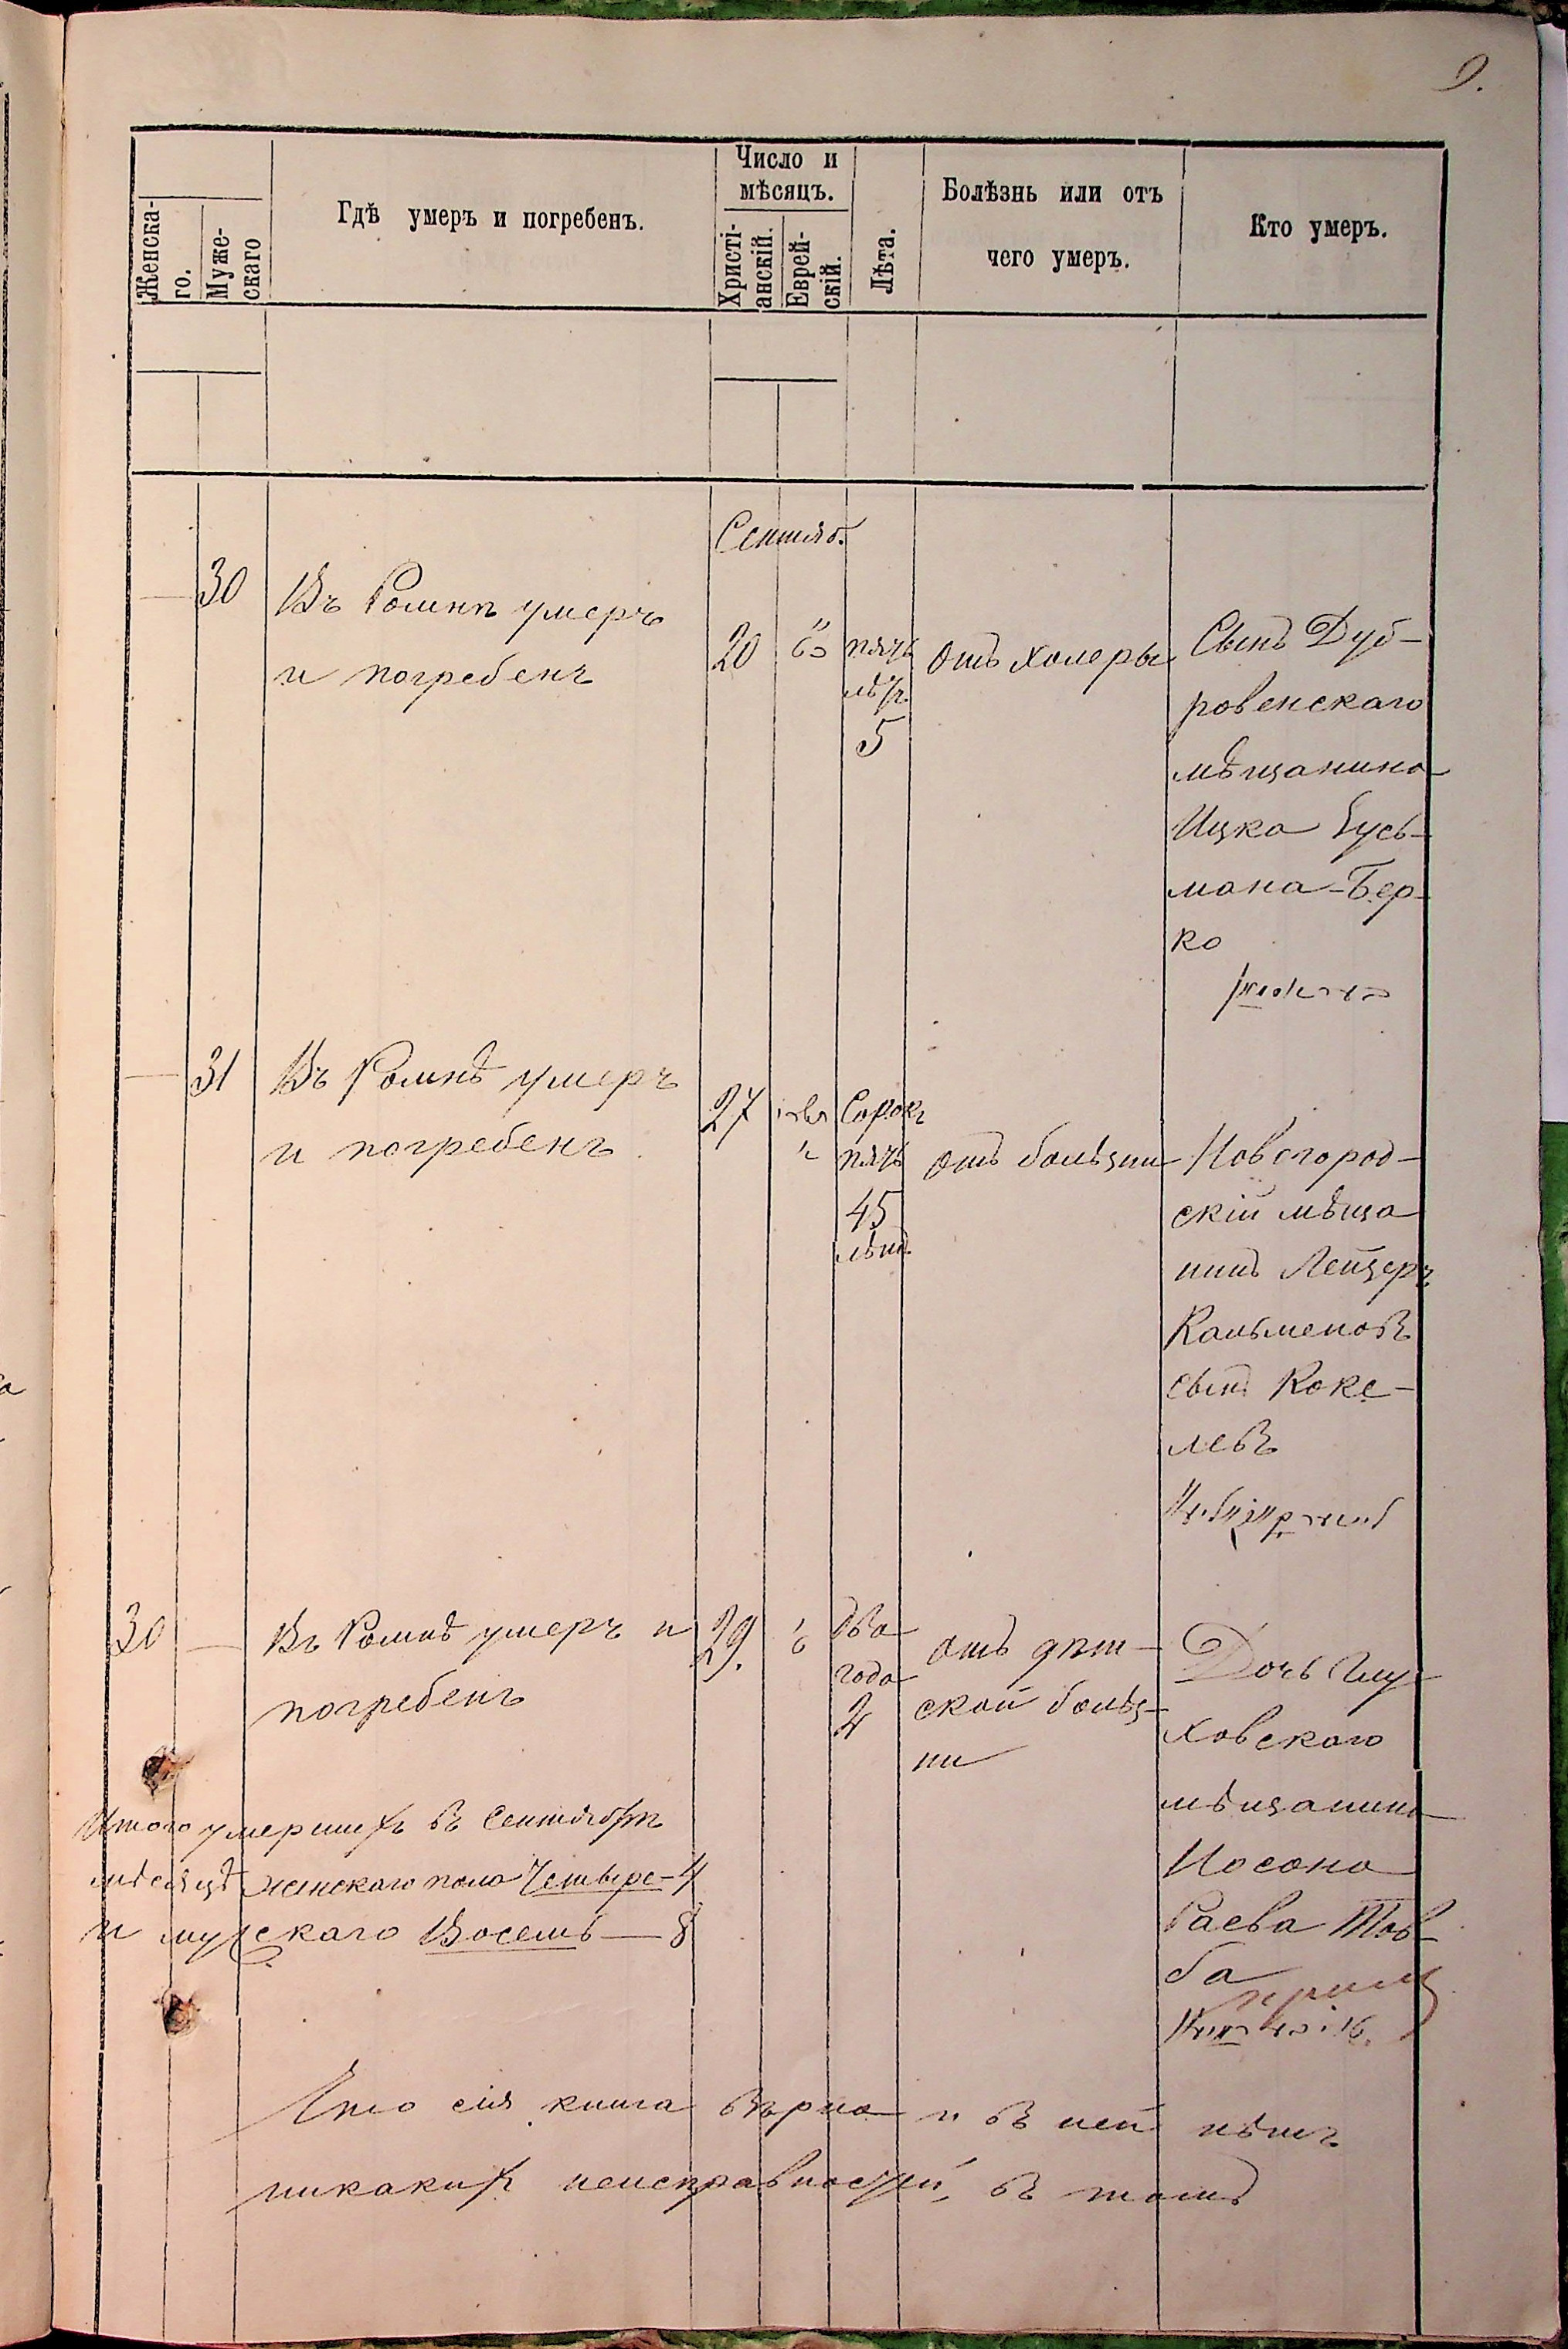 9.
Женска-
го.
Муже-
скаго
Гдѣ умеръ и погребенъ.
Число и
мѣсяцъ.
Христі-
анскій.
Еврей-
скій.
Лѣта.
Болѣзнь или отъ
чего умеръ.
Кто умеръ.
Сентяб.
— 30
Въ Ромнѣ умеръ
и погребенъ
20
пять
лѣтъ
5
отъ холеры
Сынъ Дуб-
ровенскаго
мѣщанина
Ицка Гусь-
мана-Бер-
ко
— 31
Въ Ромнѣ умеръ
и погребенъ
27
Сорокъ
пять
45
лѣтъ
отъ болѣзни
Новогород-
скій мѣща
нинъ Лейзеръ
Кальменовъ
сынъ Коке-
левъ
30 —
Въ Ромнѣ умеръ и
погребенъ
29.
два
года
2
отъ дѣт-
ской болѣз-
ни
Дочь Глу-
ховского
мѣщанина
Иосона
Раева
Итого умершихъ въ Сентябрѣ
мѣсяцѣ женскаго пола Четыре-4
и мужскаго Восемь — 8
Что сія книга вѣрна и въ ней нѣтъ
никакихъ неисправностей, въ томъ